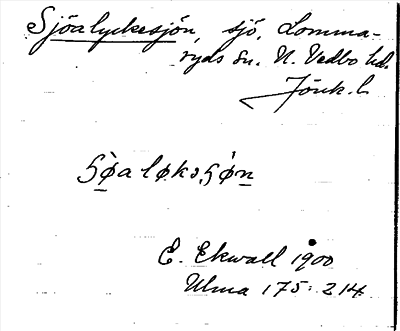 Sjöalyckesjön, sjö, Lomma-
ryds sn. N. Vedbo hd.
Jönk. l.
E. Ekwall 1900
Ulma 175:214